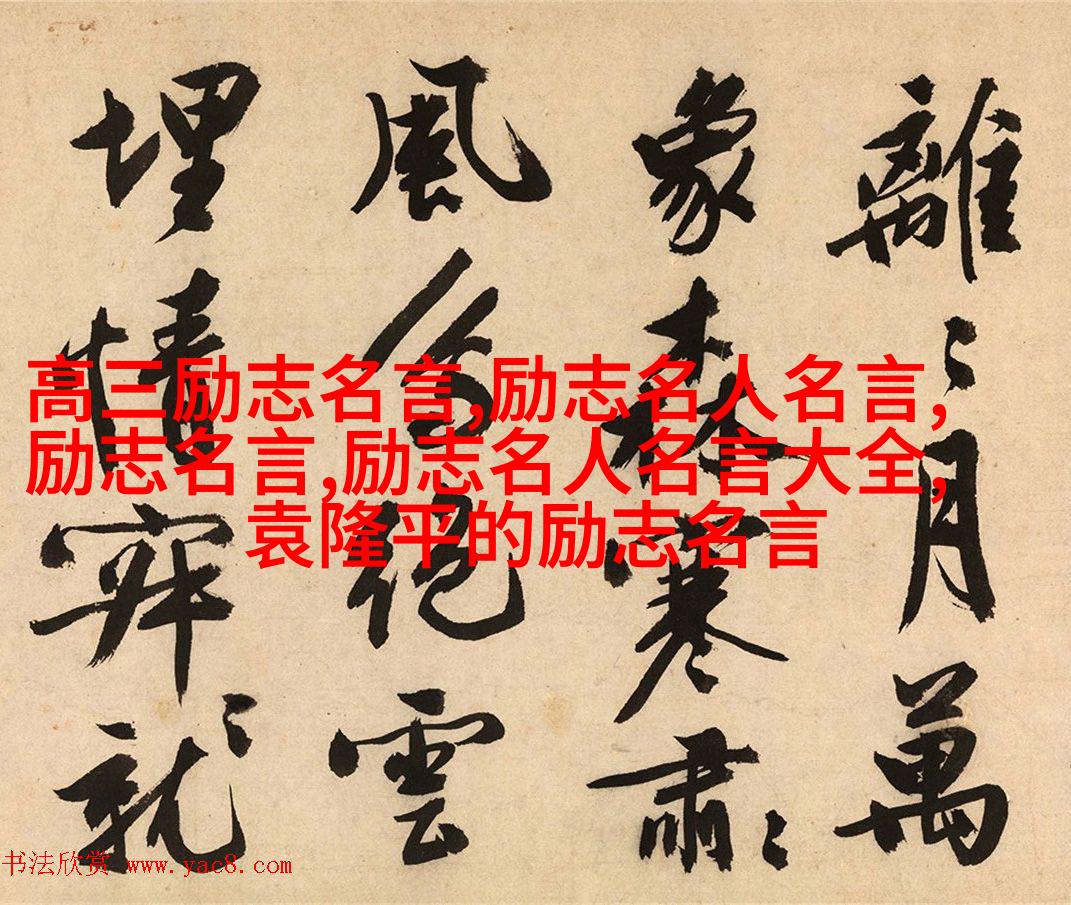 離〻月萬
象森寒肅〻
風絕雲
埋情就〻
高三励志名言,励志名人名言,
励志名言,励志名人名言大全,
袁隆平的励志名言
书法欣赏 www.yac8.com